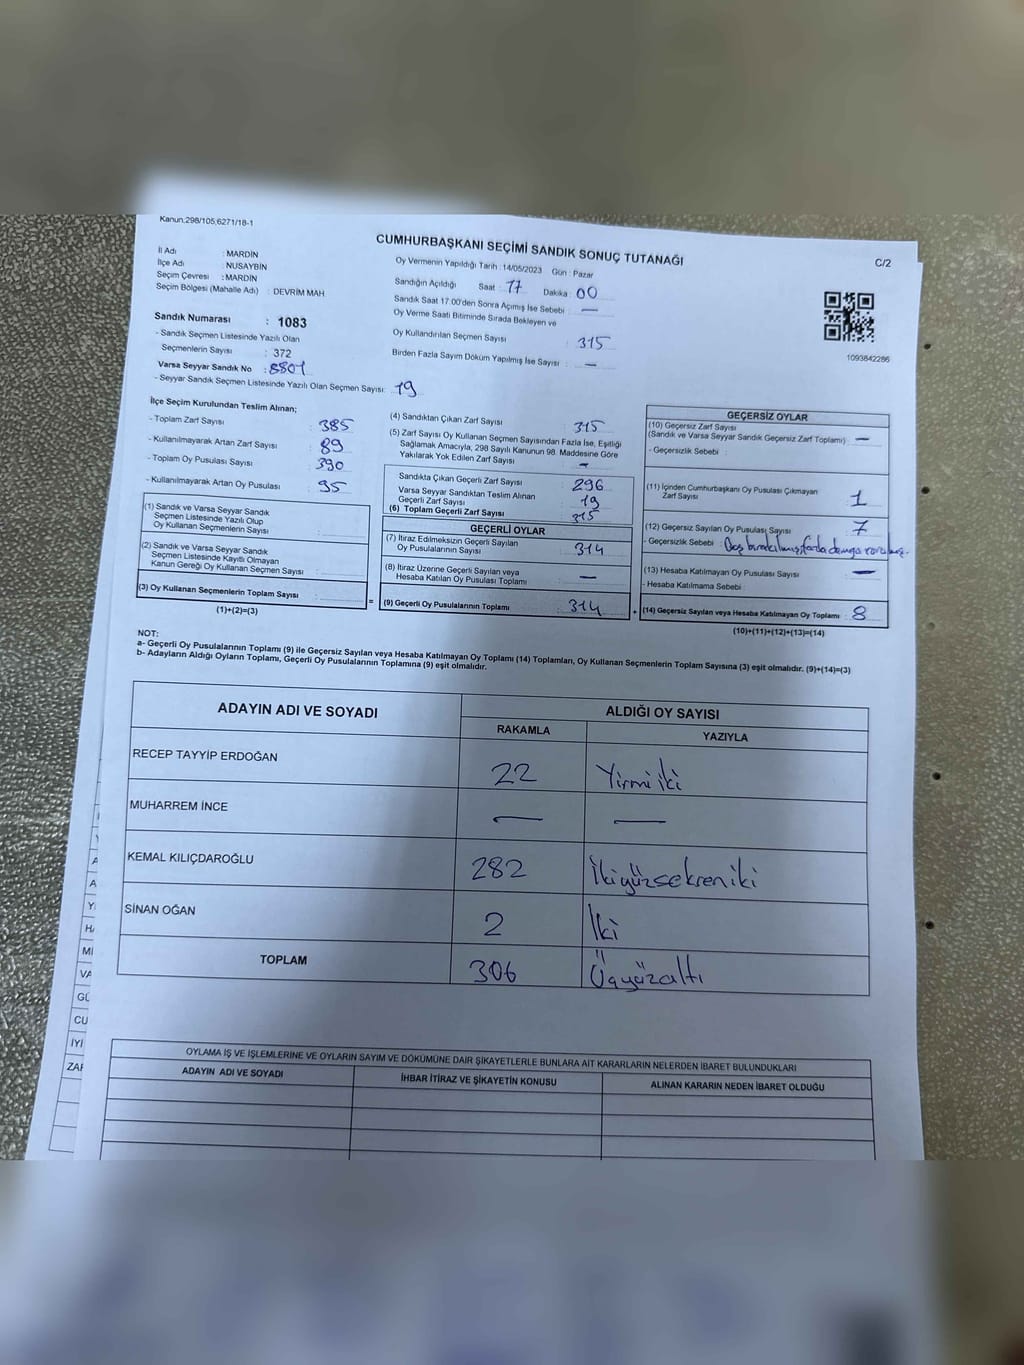 Kanun.298/105,6271/18-1
CUMHURBAŞKANI SEÇİMİ SANDIK SONUÇ TUTANAĞI
C/2
İl Adı : MARDİN
İlçe Adı : NUSAYBİN
Seçim Çevresi : MARDİN
Seçim Bölgesi (Mahalle Adı) : DEVRİM MAH
Oy Vermenin Yapıldığı Tarih : 14/05/2023 Gün : Pazar
Sandığın Açıldığı Saat : 17 Dakika : 00
Sandık Saat 17.00'den Sonra Açımış İse Sebebi : —
Oy Verme Saati Bitiminde Sırada Bekleyen ve
Oy Kullandırılan Seçmen Sayısı : 315
Birden Fazla Sayım Döküm Yapılmış İse Sayısı : —
1093842286
Sandık Numarası : 1083
- Sandık Seçmen Listesinde Yazılı Olan
Seçmenlerin Sayısı : 372
Varsa Seyyar Sandık No : 8801
- Seyyar Sandık Seçmen Listesinde Yazılı Olan Seçmen Sayısı: 19
İlçe Seçim Kurulundan Teslim Alınan;
- Toplam Zarf Sayısı : 385
- Kullanılmayarak Artan Zarf Sayısı : 89
- Toplam Oy Pusulası Sayısı : 390
- Kullanılmayarak Artan Oy Pusulası : 95
(1) Sandık ve Varsa Seyyar Sandık
Seçmen Listesinde Yazılı Olup
Oy Kullanan Seçmenlerin Sayısı :
(2) Sandık ve Varsa Seyyar Sandık
Seçmen Listesinde Kayıtlı Olmayan
Kanun Gereği Oy Kullanan Seçmen Sayısı :
(3) Oy Kullanan Seçmenlerin Toplam Sayısı :
(1)+(2)=(3)
(4) Sandıktan Çıkan Zarf Sayısı : 315
(5) Zarf Sayısı Oy Kullanan Seçmen Sayısından Fazla İse, Eşitliği
Sağlamak Amacıyla, 298 Sayılı Kanunun 98. Maddesine Göre
Yakılarak Yok Edilen Zarf Sayısı : —
Sandıkta Çıkan Geçerli Zarf Sayısı : 296
Varsa Seyyar Sandıktan Teslim Alınan
Geçerli Zarf Sayısı : 19
(6) Toplam Geçerli Zarf Sayısı : 315
GEÇERLİ OYLAR
(7) İtiraz Edilmeksizin Geçerli Sayılan
Oy Pusulalarının Sayısı : 314
(8) İtiraz Üzerine Geçerli Sayılan veya
Hesaba Katılan Oy Pusulası Toplamı : —
= (9) Geçerli Oy Pusulalarının Toplamı : 314
GEÇERSİZ OYLAR
(10) Geçersiz Zarf Sayısı
(Sandık ve Varsa Seyyar Sandık Geçersiz Zarf Toplamı) : —
- Geçersizlik Sebebi :
(11) İçinden Cumhurbaşkanı Oy Pusulası Çıkmayan
Zarf Sayısı : 1
(12) Geçersiz Sayılan Oy Pusulası Sayısı : 7
- Geçersizlik Sebebi : Boş bırakılmış, fazla damga
(13) Hesaba Katılmayan Oy Pusulası Sayısı : —
- Hesaba Katılmama Sebebi :
+ (14) Geçersiz Sayılan veya Hesaba Katılmayan Oy Toplamı : 8
(10)+(11)+(12)+(13)=(14)
NOT:
a- Geçerli Oy Pusulalarının Toplamı (9) ile Geçersiz Sayılan veya Hesaba Katılmayan Oy Toplamı (14) Toplamları, Oy Kullanan Seçmenlerin Toplam Sayısına (3) eşit olmalıdır. (9)+(14)=(3)
b- Adayların Aldığı Oyların Toplamı, Geçerli Oy Pusulalarının Toplamına (9) eşit olmalıdır.
ADAYIN ADI VE SOYADI
ALDIĞI OY SAYISI
RAKAMLA YAZIYLA
RECEP TAYYİP ERDOĞAN 22 Yirmi iki
MUHARREM İNCE — —
KEMAL KILIÇDAROĞLU 282 İkiyüzsekseniki
SİNAN OĞAN 2 İki
TOPLAM 306 Üçyüzaltı
OYLAMA İŞ VE İŞLEMLERİNE VE OYLARIN SAYIM VE DÖKÜMÜNE DAİR ŞİKAYETLERLE BUNLARA AİT KARARLARIN NELERDEN İBARET BULUNDUKLARI
ADAYIN ADI VE SOYADI İHBAR İTİRAZ VE ŞİKAYETİN KONUSU ALINAN KARARIN NEDEN İBARET OLDUĞU
A
A
Y
H
Mİ
VA
GÜ
CU
İYİ
ZAF